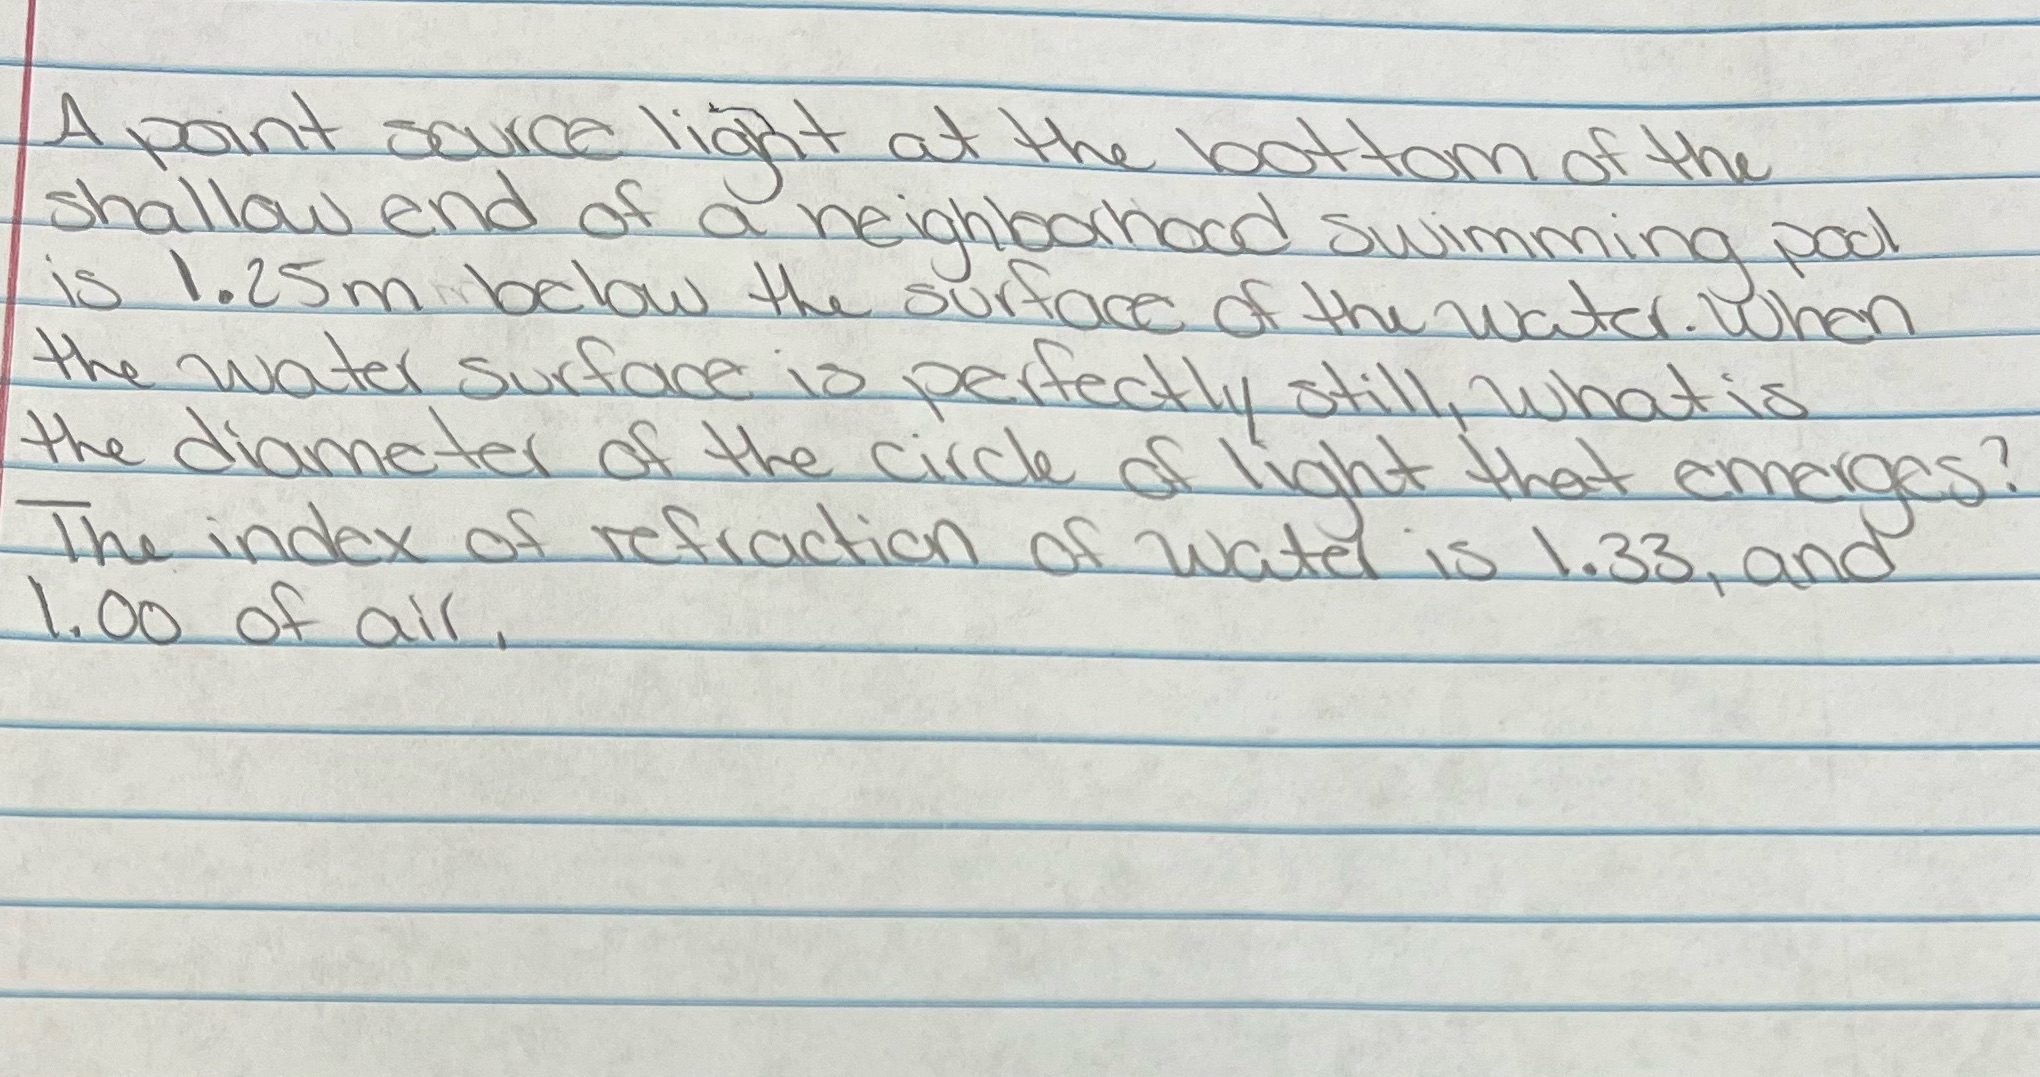 A point source light at the bottom of the
shallow end of a neighborhood swimming pool
is 1.25m below the surface of the water. When
the water surface is perfectly still, what is
the diameter of the circle of light that emerges?
The index of refraction of water is 1.33, and
1.00 of air.